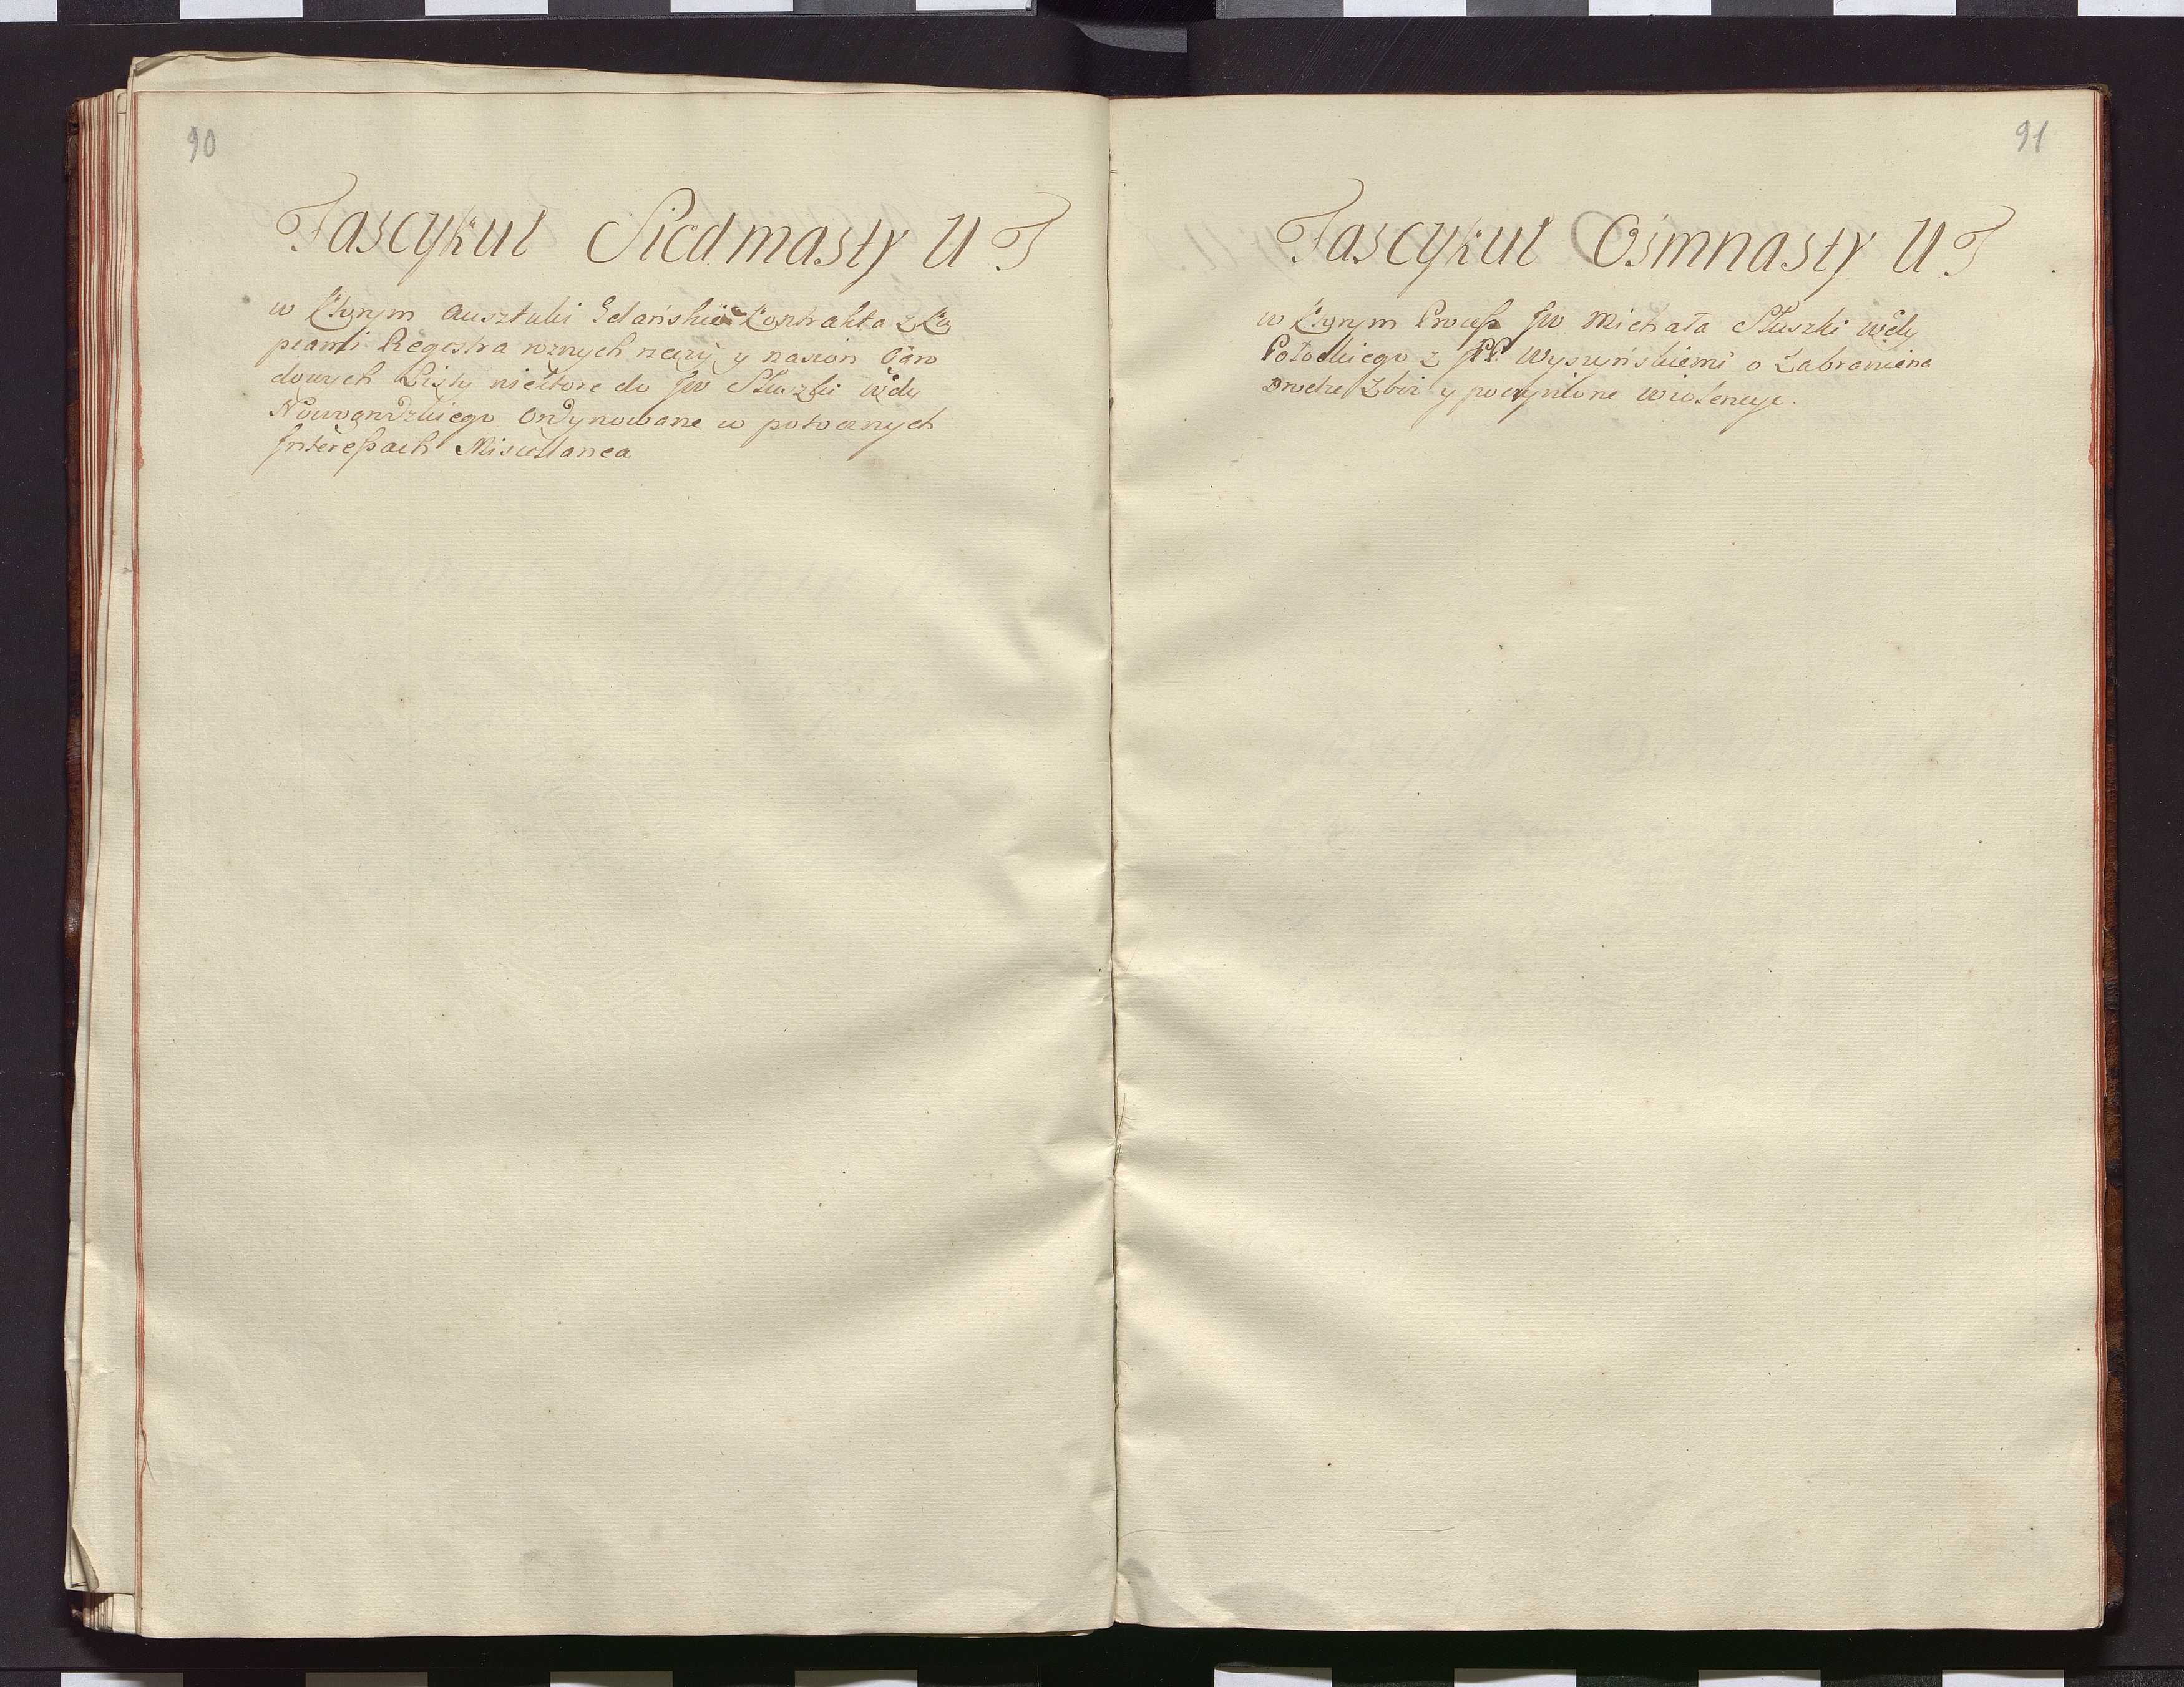 90
Fascykuł Siedmnasty U T
w Ktorym Ausztuki Gdańskie Kontrakta z Ku
pcami Regestra roznych rzeczy y nasion Ogro
dowych Listy niektore do JW Słuszki Wdy
Nowogrodzkiego Ordynowane w potocznych
Interessach Miscellanea
91
Fascykuł Osmnasty U T
w Ktorym Process JW Michała Słuszki Wdy
Połockiego z JPP Wyszyńskiemi o Zabranie na
Drodze Zboż y poczynione wiolencye.